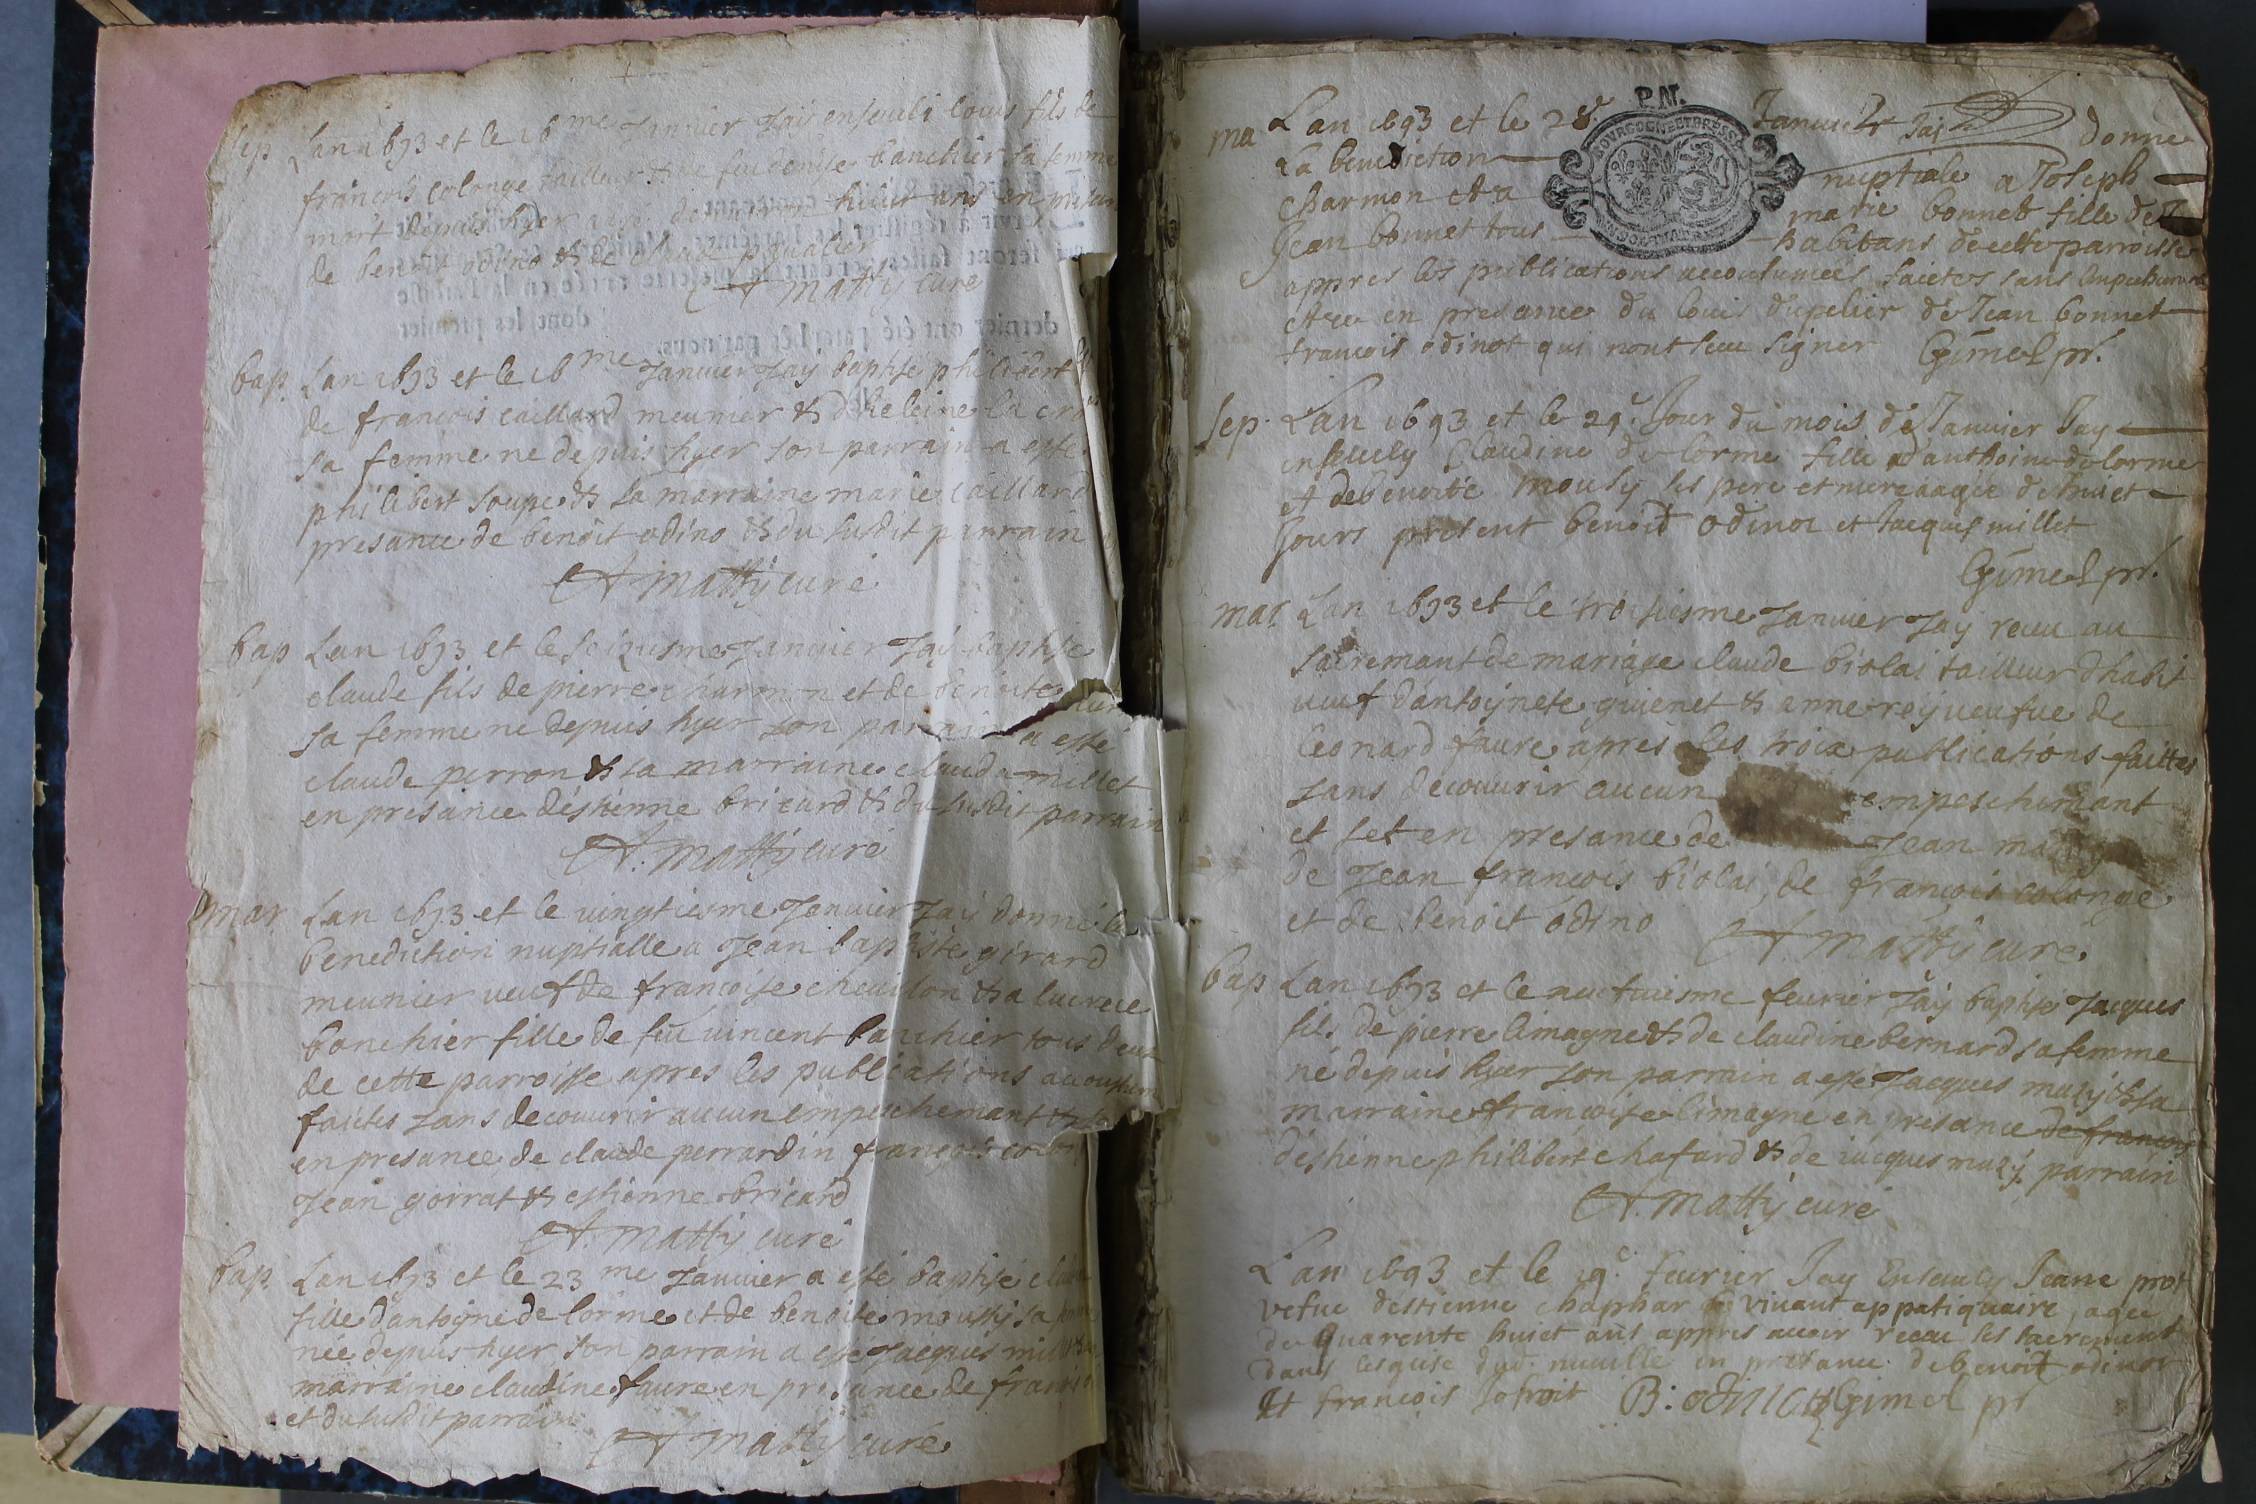 sep
Lan 1693 et le 16me Janvier Jay enseveli louis fils de
françois colonge tailleur & de feu denise banchier sa femme
mort depuis hyer agé denviron huict ans en presan
de benoit odino & de claude
A Matty curé
bap.
Lan 1693 et le 16me Janvier Jay baptisé philibert
de françois caillard meunier & dheleine la
sa femme ne depuis hyer son parrain a esté
philibert soupe & sa marraine marie caillard
presance de benoit odino & du susdit parrain
A Matty curé
bap
Lan 1693 et le seiziesme Janvier Jay baptisé
claude fils de pierre charmon et de benoite
sa femme né depuis hyer son parrain a esté
claude perron & sa marraine claude millet
en presance déstienne bricard & du susdit parrain
A. Matty curé
mar
Lan 1693 et le vingtiesme Janvier Jay donné la
benediction nuptialle a Jean baptiste girard
meunier veuf de françoise chevillon & a lucrece
banchier fille de feu vincent banchier tous deux
de cette parroisse apres les publications accoustum
faictes sans decouvrir aucun empeschemant
en presance de claude perrardin françois colon
Jean gorrat & estienne bricard
A. Matty curé
bap.
Lan 1693 et le 23me Janvier a esté baptisé
fille dantoyne de lorme et de benoite moussy sa
née depuis hyer son parrain a esté Jacques mil
marraine claudine faure en presance de françois
et du susdit parrain
A Matty curé
P.M.
BOURGOGNE ET BRESSE
ma
Lan 1693 et le 28e Janvier Jay donne
La benediction nuptiale a Joseph
charmon et a marie bonnet fille de
Jean bonnet tous habitans de cette parroisse
appres les publications accoutumées faictes sans
en presance du louis dupelier de Jean bonnet
francois odinot qui nont sceu signer Gimel pr.
sep.
Lan 1693 et le 29e Jour du mois de Janvier Jay
ensevely Claudine de lorme fille danthoine de lorme
et de benoite mousy ses pere et mere aagée de huict
Jours present benoit odinot et Jacques millet
Gimel pr.
mar
Lan 1693 et le troisiesme Janvier Jay receu au
sacremant de mariage claude biolai tailleur dhabit
veuf dantoynete guienet & anne rey veufve de
leonard faure apres les trois publications faittes
sans decouvrir aucun empeschemant
et set en presance de Jean
de Jean françois biolai, de françois colonge
et de benoit odino A Matty curé
bap
Lan 1693 et le neufviesme fevrier Jay baptisé Jacques
fils de pierre limagne & de claudine bernard sa femme
né depuis hyer son parrain a esté Jacques muzy & sa
marraine françoise limagne en presance de françois
déstienne philibert chafard & de iacques muzy parrain
A. Matty curé
Lan 1693 et le 19e fevrier Jay Ensevely Jeane prot
vefve destienne chaphar vivant appatiquaire, agée
de quarente huict ans appres avoir receu ses sacrement
dans lesglise dud. neuville en presance de benoit odinot
Et françois Jofroit B: odinot Gimel pr